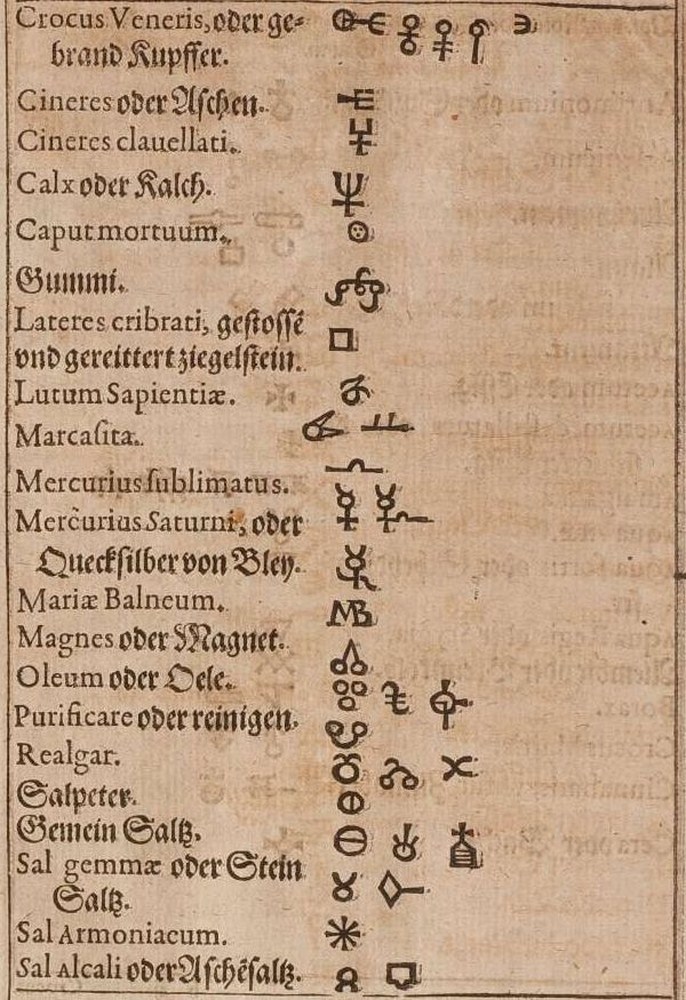 Crocus Veneris, oder ge⸗
brand Kupffer.
Cineres oder Aschen.
Cineres clauellati.
Calx oder Kalch.
Caput mortuum.
Gummi.
Lateres cribrati, gestossẽ
vnd gereittert ziegelstein.
Lutum Sapientiæ.
Marcasita.
Mercurius sublimatus.
Mercurius Saturni, oder
Quecksilber von Bley.
Mariæ Balneum. MB
Magnes oder Magnet.
Oleum oder Oele.
Purificare oder reinigen.
Realgar.
Salpeter.
Gemein Saltz.
Sal gemmæ oder Stein
Saltz.
Sal Armoniacum.
Sal Alcali oder Aschẽsaltz.